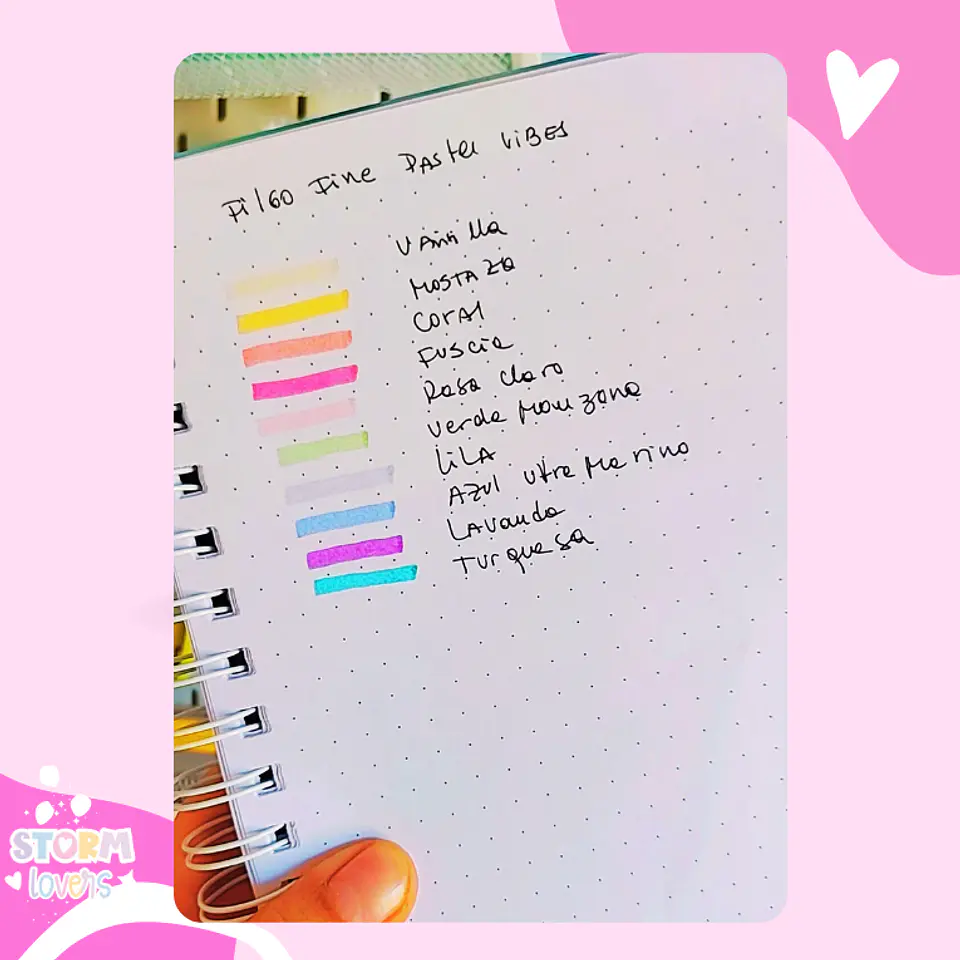 Filgo Fine PASTEl ViBES
VAiNillA
MOSTAZA
COrAl
FUSCiA
ROSA ClarO
Verde Manzana
LiLA
AZUl UltraMArino
LAVANDA
TUrqueSA
STORM
lovers